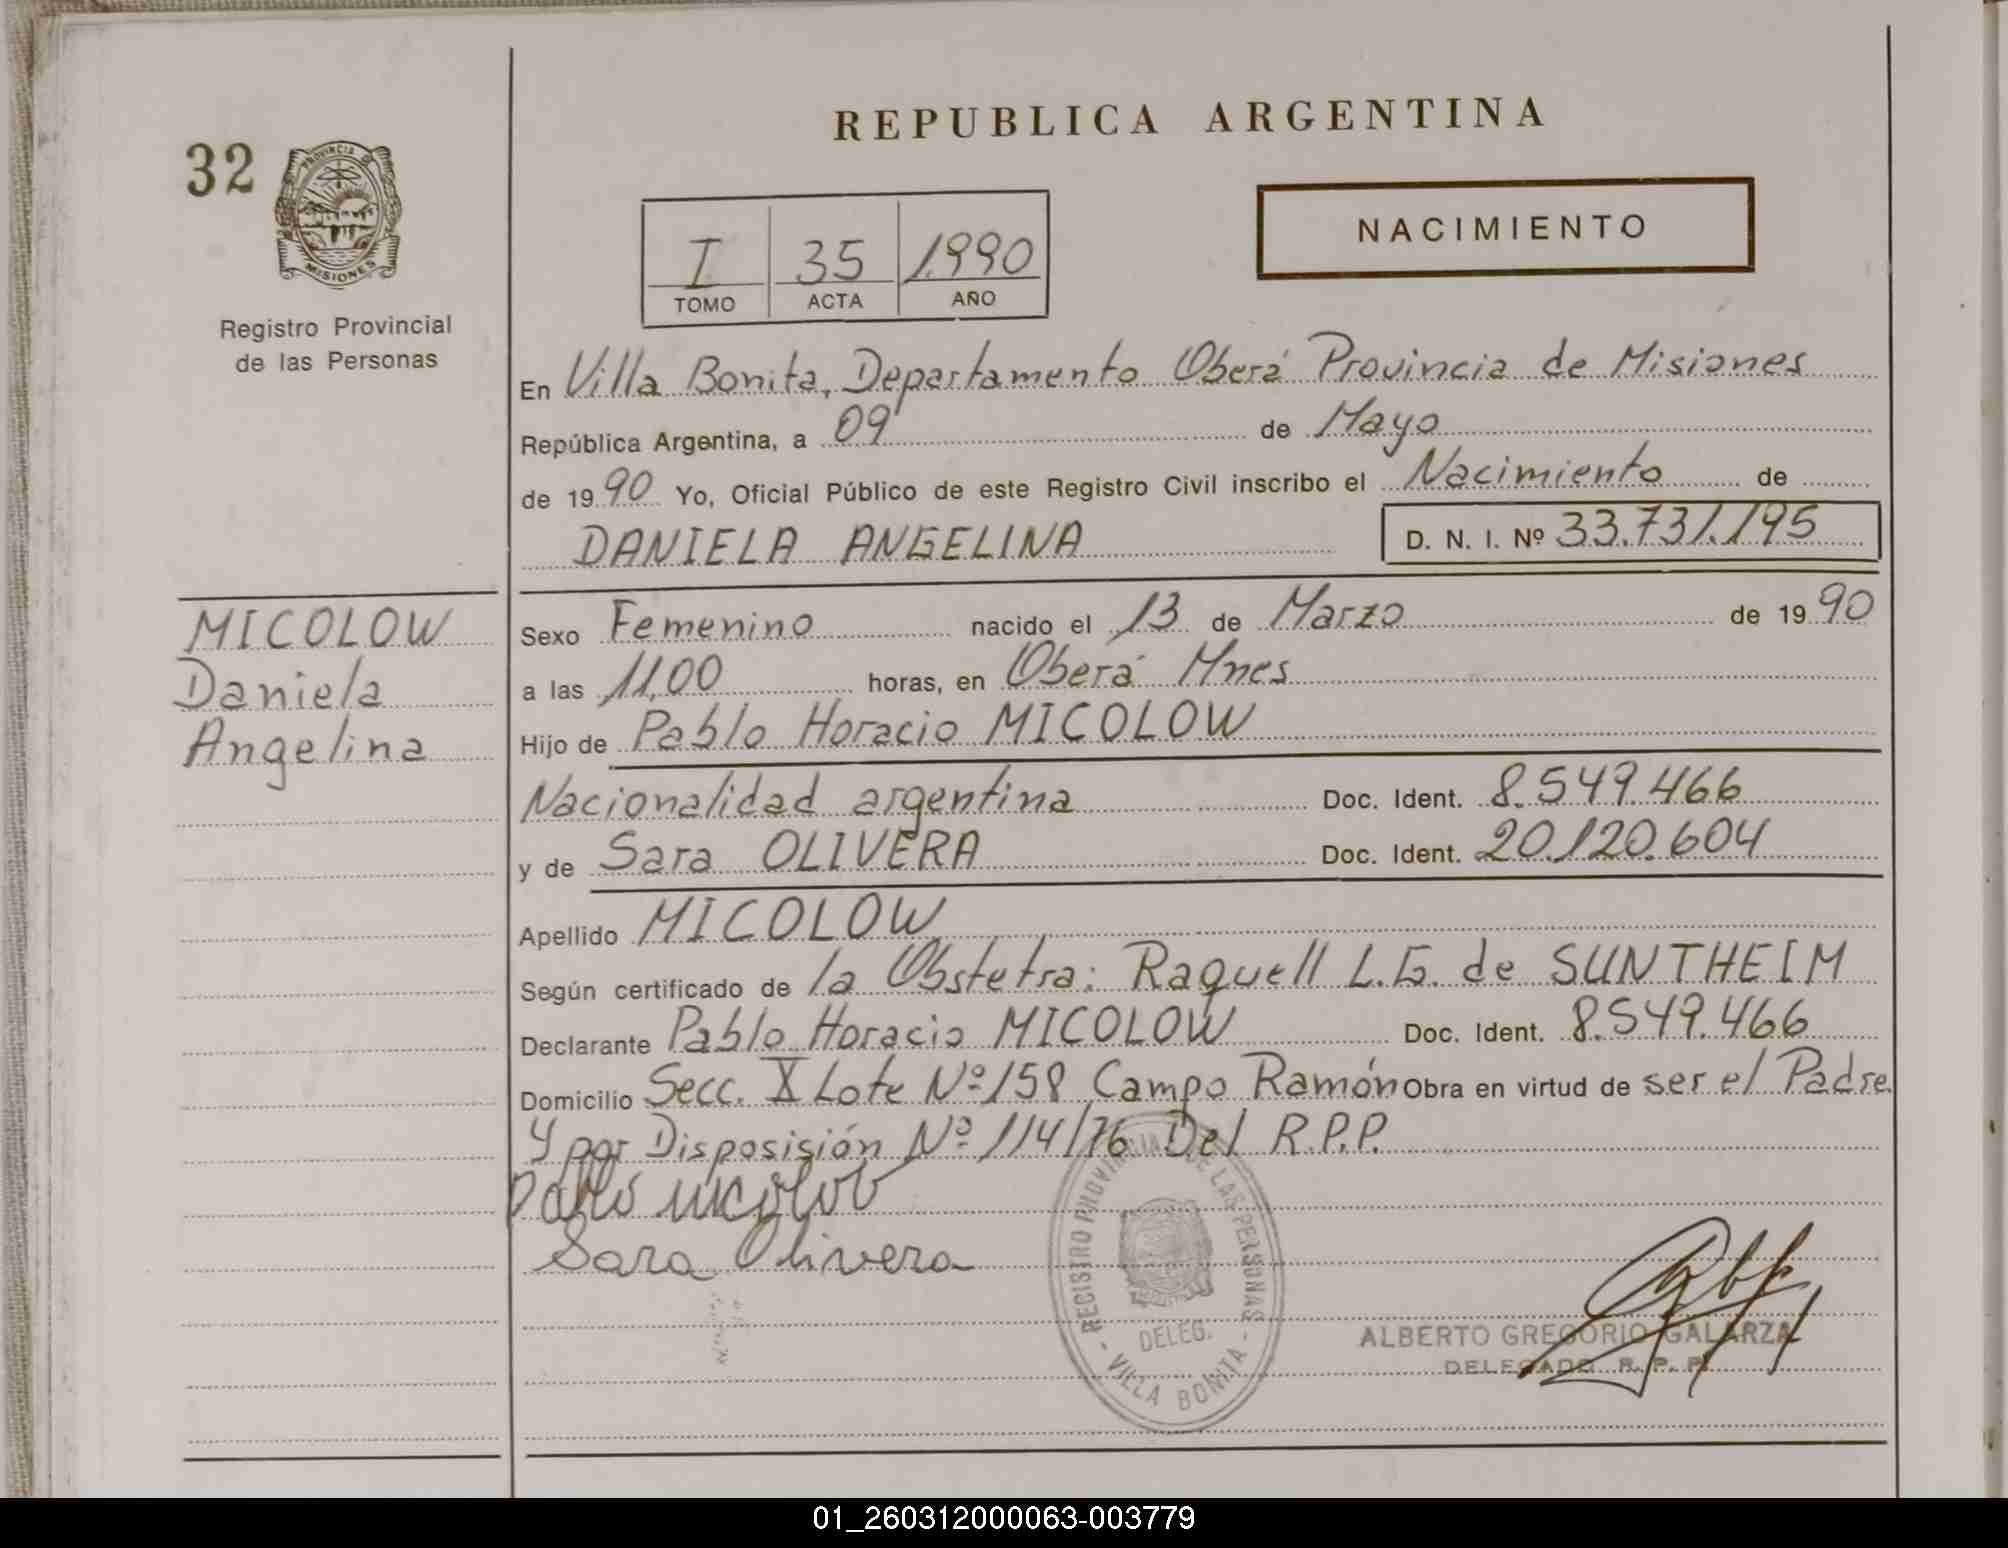 REPUBLICA ARGENTINA
32
PROVINCIA DE
MISIONES
Registro Provincial
de las Personas
NACIMIENTO
I 35 1.990
TOMO ACTA AÑO
En Villa Bonita, Departamento Oberá Provincia de Misiones
República Argentina, a 09 de Mayo
de 1990 Yo, Oficial Público de este Registro Civil inscribo el Nacimiento de
DANIELA ANGELINA D. N. I. Nº 33.731.195
MICOLOW
Daniela
Angelina
Sexo Femenino nacido el 13 de Marzo de 1990
a las 11,00 horas, en Oberá Mnes
Hijo de Pablo Horacio MICOLOW
Nacionalidad argentina Doc. Ident. 8.549.466
y de Sara OLIVERA Doc. Ident. 20.120.604
Apellido MICOLOW
Según certificado de la Obstetra: Raquell L.G. de SUNTHEIM
Declarante Pablo Horacio MICOLOW Doc. Ident. 8.549.466
Domicilio Secc. X Lote Nº 158 Campo Ramón Obra en virtud de ser el Padre
Y por Disposisión Nº 114/76 Del R.P.P.
Pablo Micolow
Sara Olivera
REGISTRO PROVINCIAL DE LAS PERSONAS
DELEG.
- VILLA BONITA -
ALBERTO GREGORIO GALARZA
DELEGADO R. P. P.
01_260312000063-003779